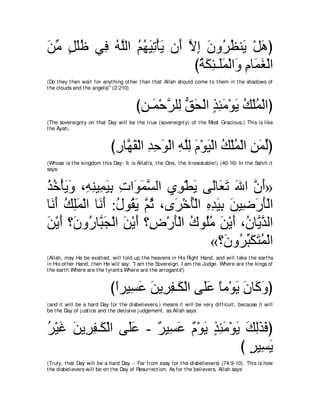 (هَلْ يَنظُرُونَ إِلاَّ أَن يَأْتِيَهُمُ اللَّهُ فِي ظُلَلٍ مِّنَ
الْغَمَامِ وَالْمَلَـئِكَةُ)
(Do they then wait for anything other than that Allah should come to them in the shadows of the clouds and the angels)" (2:210)
(الْمُلْكُ يَوْمَئِذٍ الْحَقُّ لِلرَّحْمَـنِ)
(The sovereignty on that Day will be the true (sovereignty) of the Most Gracious,) This is like the Ayah,
(لِّمَنِ الْمُلْكُ الْيَوْمَ لِلَّهِ الْوَحِدِ الْقَهَّارِ)
(Whose is the kingdom this Day: It is Allah's, the One, the Irresistable!) (40:16) In the Sahih it says:
«أَنَّ اللهَ تَعَالَى يَطْوِي السَّمَوَاتِ بِيَمِينِهِ، وَيَأْخُذُ
الْأَرَضِينَ بِيَدِهِ الْأُخْرَى، ثُمَّ يَقُولُ: أَنَا الْمَلِكُ أَنَا
الدَّيَّانُ، أَيْنَ مُلُوكُ الْأَرْضِ؟ أَيْنَ الْجَبَّارُونَ؟ أَيْنَ
الْمُتَكَبِّرُونَ؟»
(Allah, may He be exalted, will fold up the heavens in His Right Hand, and will take the earths in His other Hand, then He will say: "I am the Sovereign, I am the Judge. Where are the kings of the earth Where are the tyrants Where are the arrogants")
(وَكَانَ يَوْماً عَلَى الْكَـفِرِينَ عَسِيراً)
(and it will be a hard Day for the disbelievers.) means it will be very difficult, because it will be the Day of justice and the decisive judgement, as Allah says:
(فَذَلِكَ يَوْمَئِذٍ يَوْمٌ عَسِيرٌ - عَلَى الْكَـفِرِينَ غَيْرُ
يَسِيرٍ )
(Truly, that Day will be a hard Day -- Far from easy for the disbelievers) (74:9-10). This is how the disbelievers will be on the Day of Resurrection. As for the believers, Allah says: